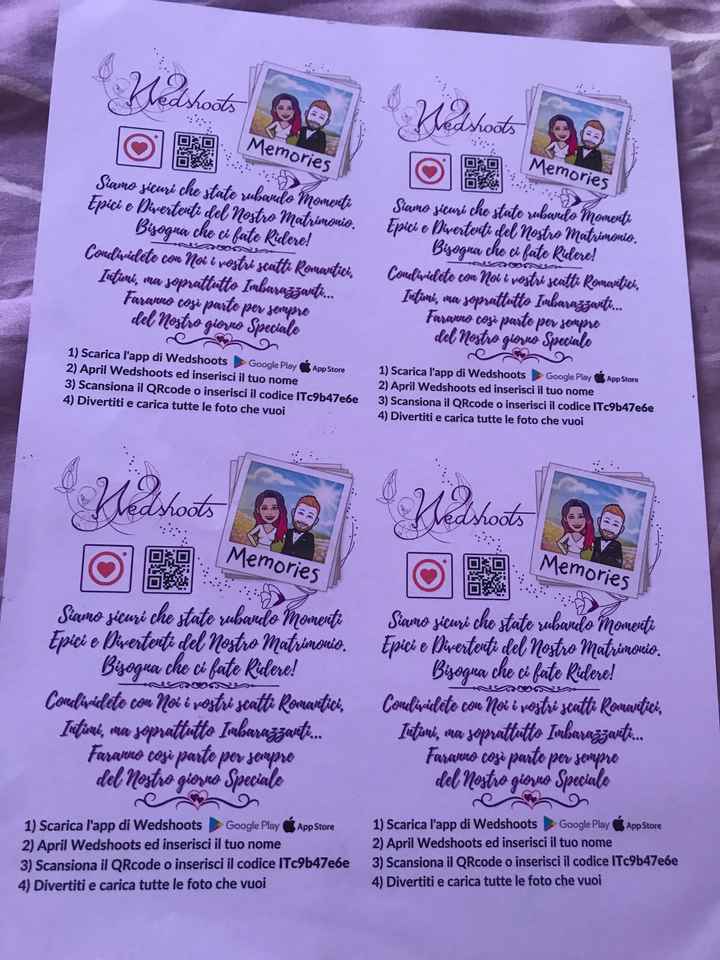 Wedshoots
Memories
Siamo sicuri che state rubando Momenti
Epici e Divertenti del Nostro Matrimonio.
Bisogna che ci fate Ridere!
Condividete con Noi i vostri scatti Romantici,
Intimi, ma soprattutto Imbarazzanti...
Faranno così parte per sempre
del Nostro giorno Speciale
1) Scarica l'app di Wedshoots Google Play App Store
2) April Wedshoots ed inserisci il tuo nome
3) Scansiona il QRcode o inserisci il codice ITc9b47e6e
4) Divertiti e carica tutte le foto che vuoi
Wedshoots
Memories
Siamo sicuri che state rubando Momenti
Epici e Divertenti del Nostro Matrimonio.
Bisogna che ci fate Ridere!
Condividete con Noi i vostri scatti Romantici,
Intimi, ma soprattutto Imbarazzanti...
Faranno così parte per sempre
del Nostro giorno Speciale
1) Scarica l'app di Wedshoots Google Play App Store
2) April Wedshoots ed inserisci il tuo nome
3) Scansiona il QRcode o inserisci il codice ITc9b47e6e
4) Divertiti e carica tutte le foto che vuoi
Wedshoots
Memories
Siamo sicuri che state rubando Momenti
Epici e Divertenti del Nostro Matrimonio.
Bisogna che ci fate Ridere!
Condividete con Noi i vostri scatti Romantici,
Intimi, ma soprattutto Imbarazzanti...
Faranno così parte per sempre
del Nostro giorno Speciale
1) Scarica l'app di Wedshoots Google Play App Store
2) April Wedshoots ed inserisci il tuo nome
3) Scansiona il QRcode o inserisci il codice ITc9b47e6e
4) Divertiti e carica tutte le foto che vuoi
Wedshoots
Memories
Siamo sicuri che state rubando Momenti
Epici e Divertenti del Nostro Matrimonio.
Bisogna che ci fate Ridere!
Condividete con Noi i vostri scatti Romantici,
Intimi, ma soprattutto Imbarazzanti...
Faranno così parte per sempre
del Nostro giorno Speciale
1) Scarica l'app di Wedshoots Google Play App Store
2) April Wedshoots ed inserisci il tuo nome
3) Scansiona il QRcode o inserisci il codice ITc9b47e6e
4) Divertiti e carica tutte le foto che vuoi